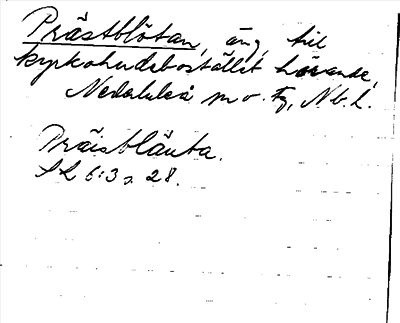 Prästblötan, äng, till
kyrkoherdebostället hörande,
Nederluleå sn o. tg, Nb. l.
Präistbläuta.
SL 6:3 s. 28.